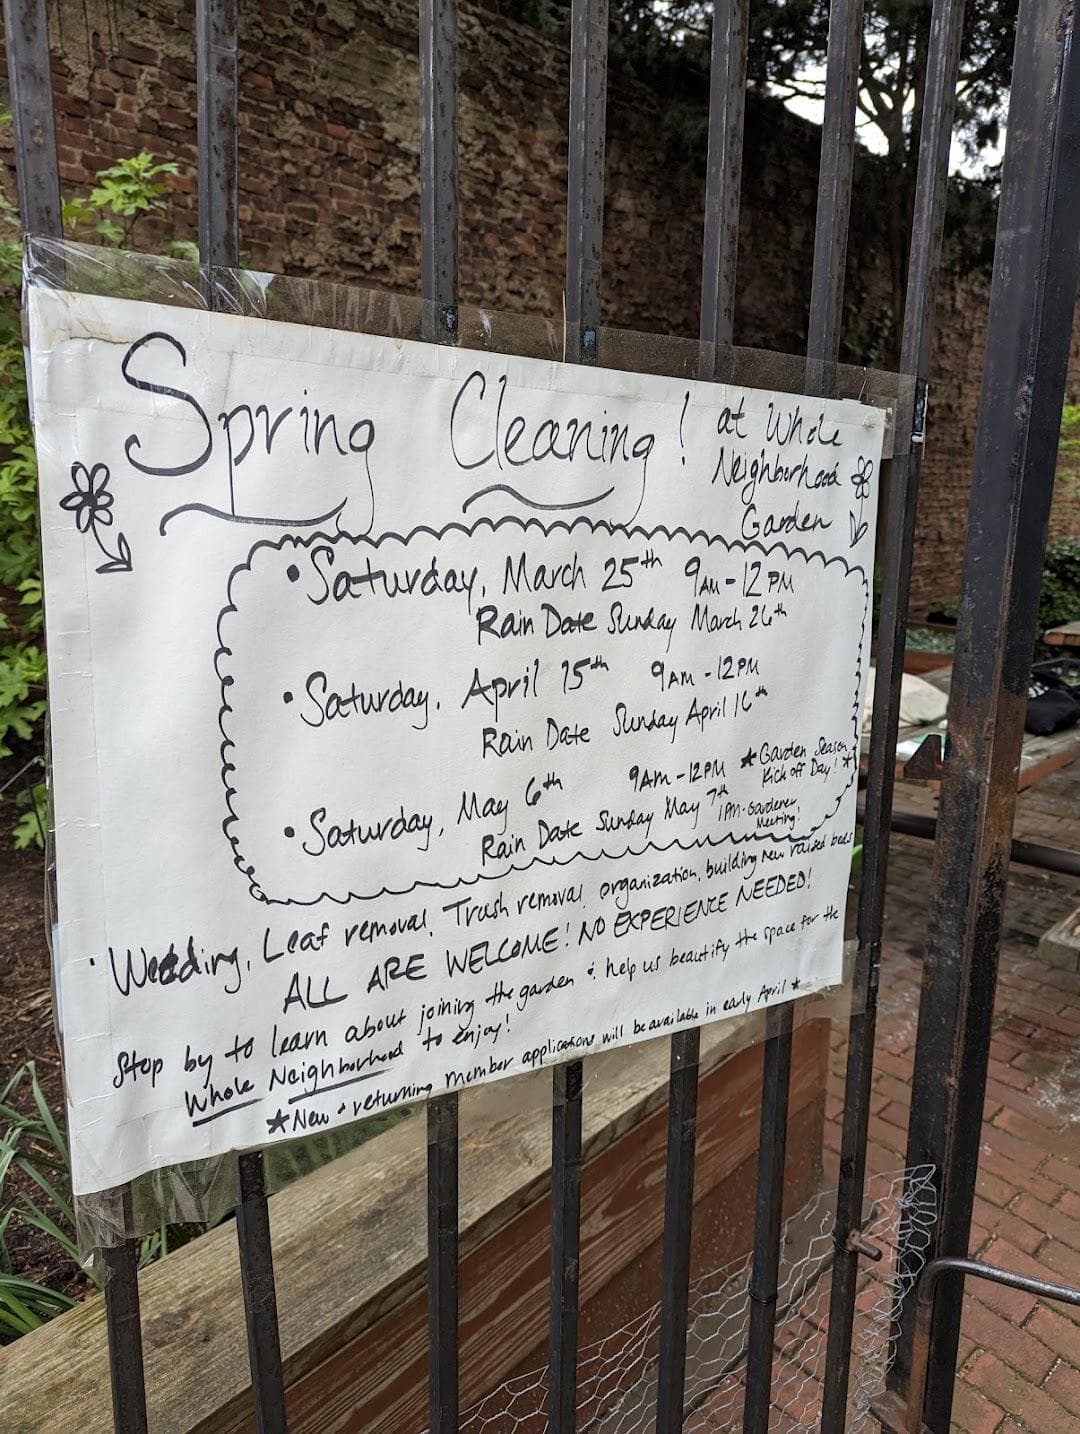 Spring Cleaning! at Whole
Neighborhood
Garden
• Saturday, March 25th 9AM-12PM
Rain Date Sunday March 26th
• Saturday, April 15th 9AM-12PM
Rain Date Sunday April 16th
• Saturday, May 6th 9AM-12PM ★Garden Season
Kick off Day!★
Rain Date Sunday May 7th 1PM-Gardener
Meeting!
• Weeding, Leaf removal, Trash removal, organization, building new raised beds
ALL ARE WELCOME! NO EXPERIENCE NEEDED!
Stop by to learn about joining the garden & help us beautify the space for the
Whole Neighborhood to enjoy!
★New & returning member applications will be available in early April★